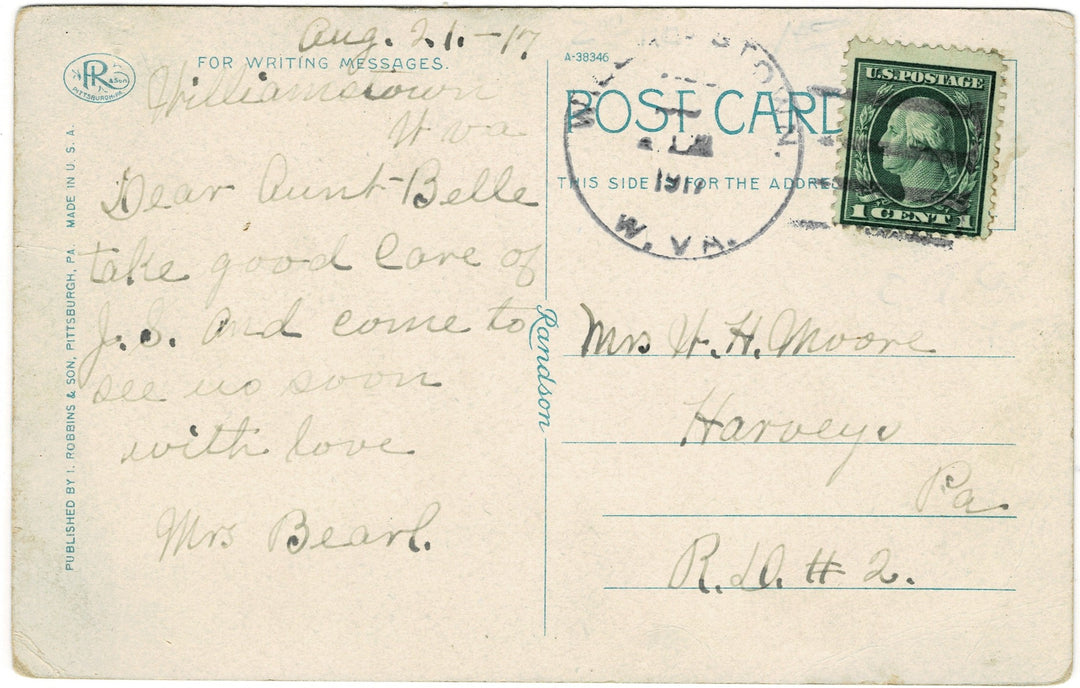 Aug. 21.-17
Williamstown
W va
Dear Aunt Belle
take good care of
J. S. and come to
see us soon
with love
Mrs Bearl.
FOR WRITING MESSAGES.
R & Son
PITTSBURGH, PA.
PUBLISHED BY I. ROBBINS & SON, PITTSBURGH, PA. MADE IN U. S. A.
Randson
A-38346
POST CARD
THIS SIDE FOR THE ADDRE
1917
W. VA.
U.S. POSTAGE
1 CENT 1
Mrs W. H. Moore
Harveys
Pa
R. D. # 2.